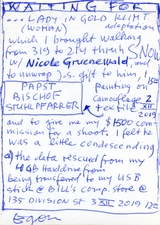 WAITING FOR
... LADY IN GOLD KLIMT
(WOMAN) adaptation
which I brought walking
from 319 to 217 thruh SNOW
w/ Nicole Gruenewald, and
to unwrap J.S. gift to him,
PAPST
BISCHOF
STUHLPFARRER
painting on
camouflage
textile 2 XII 2019
and to give my $1500 com
mission for a shoot. I felt he
was a little condescending
d) the data rescued from my
4 GB harddrive from
being transferred to my USB
stick @ Bill's comp. store @
135 DIVISION ST 3 XII 2019